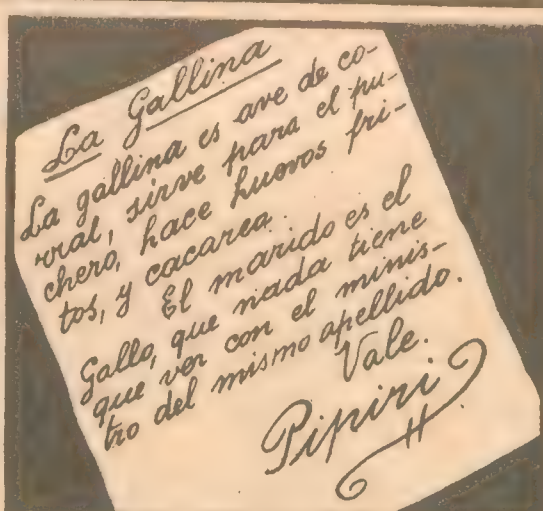 La Gallina
La gallina es ave de co-
rral, sirve para el pu-
chero, hace huevos fri-
tos, y cacarea.
El marido es el
Gallo, que nada tiene
que ver con el minis-
tro del mismo apellido.
Vale.
Pipiri